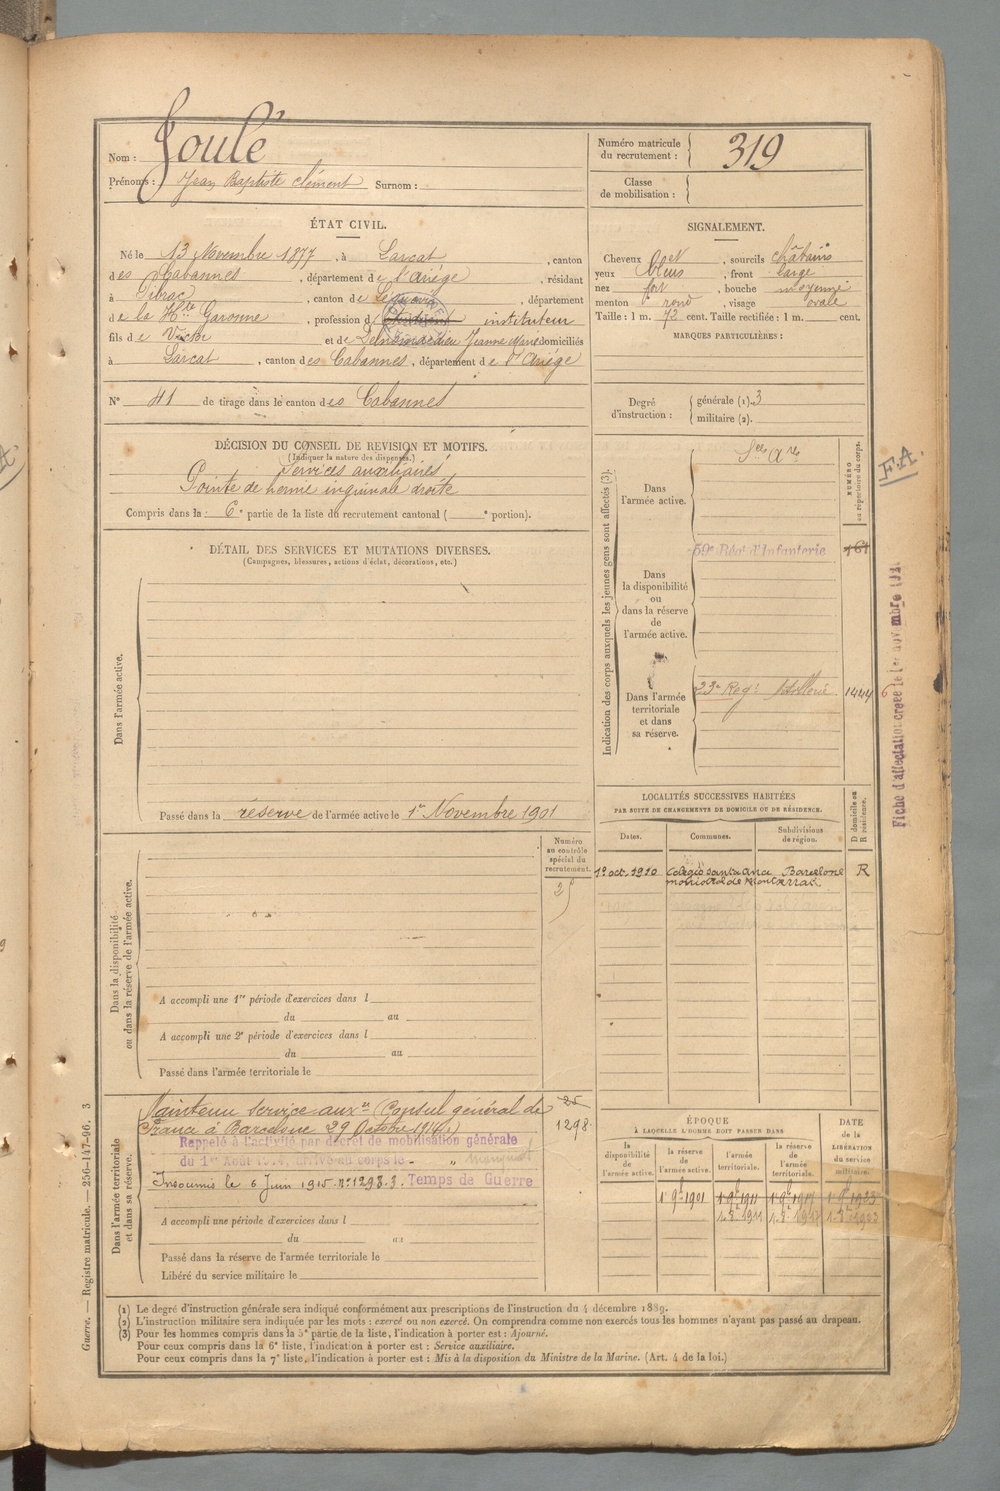 Nom : Goulé
Prénoms : Jean Baptiste Clément Surnom :
Numéro matricule du recrutement : 319
Classe de mobilisation :
ÉTAT CIVIL.
Né le 13 Novembre 1877, à Larcat, canton
des Cabannes, département de l'Ariége, résidant
à Pibrac, canton de Léguevin, département
de la Hte Garonne, profession d instituteur
fils de Victor et de Jeanne Marie domiciliés
à Larcat, canton des Cabannes, département de l'Ariége
N° 41 de tirage dans le canton des Cabannes
SIGNALEMENT.
Cheveux, sourcils châtains
yeux bleus, front large
nez fort, bouche moyenne
menton rond, visage ovale
Taille : 1 m. 72 cent. Taille rectifiée : 1 m. cent.
MARQUES PARTICULIÈRES :
Degré d'instruction : générale (1). 3
militaire (2).
DÉCISION DU CONSEIL DE REVISION ET MOTIFS.
(Indiquer la nature des dispenses.)
Services auxiliaires
Pointe de hernie inguinale droite
Compris dans la 6e partie de la liste du recrutement cantonal ( e portion).
DÉTAIL DES SERVICES ET MUTATIONS DIVERSES.
(Campagnes, blessures, actions d'éclat, décorations, etc.)
Dans l'armée active.
Passé dans la réserve de l'armée active le 1er Novembre 1901
Indication des corps auxquels les jeunes gens sont affectés (3).
NUMÉRO au répertoire du corps.
Dans l'armée active.
Dans la disponibilité ou dans la réserve de l'armée active.
59e Régt d'Infanterie
Dans l'armée territoriale et dans sa réserve.
23e Regt 1444
F.A.
Fiche d'affectation créée le 1er novembre
LOCALITÉS SUCCESSIVES HABITÉES
PAR SUITE DE CHANGEMENTS DE DOMICILE OU DE RÉSIDENCE.
D domicile ou R résidence.
Dates. Communes. Subdivisions de région.
1er oct. 1910 Colegio santa Ana Barcelone R
Dans la disponibilité ou dans la réserve de l'armée active.
Numéro au contrôle spécial du recrutement.
A accompli une 1re période d'exercices dans l
du au
A accompli une 2e période d'exercices dans l
du au
Passé dans l'armée territoriale le
Dans l'armée territoriale et dans sa réserve.
Maintenu service auxre (Consul général de
France à Barcelone 29 Octobre 1914.)
25
1298
Rappelé à l'activité par décret de mobilisation générale
du 1er Août 1914, arrivé au corps le - " manquant
Insoumis le 6 Juin 1915 N° 1298.3. Temps de Guerre
A accompli une période d'exercices dans l
du au
Passé dans la réserve de l'armée territoriale le
Libéré du service militaire le
ÉPOQUE
À LAQUELLE L'HOMME DOIT PASSER DANS
DATE de la LIBÉRATION du service militaire.
la disponibilité de l'armée active.
la réserve de l'armée active.
l'armée territoriale.
la réserve de l'armée territoriale.
1er 9bre 1901
(1) Le degré d'instruction générale sera indiqué conformément aux prescriptions de l'instruction du 4 décembre 1889.
(2) L'instruction militaire sera indiquée par les mots : exercé ou non exercé. On comprendra comme non exercés tous les hommes n'ayant pas passé au drapeau.
(3) Pour les hommes compris dans la 5e partie de la liste, l'indication à porter est : Ajourné.
Pour ceux compris dans la 6e liste, l'indication à porter est : Service auxiliaire.
Pour ceux compris dans la 7e liste, l'indication à porter est : Mis à la disposition du Ministre de la Marine. (Art. 4 de la loi.)
Guerre. — Registre matricule. — 256-147-96. 3